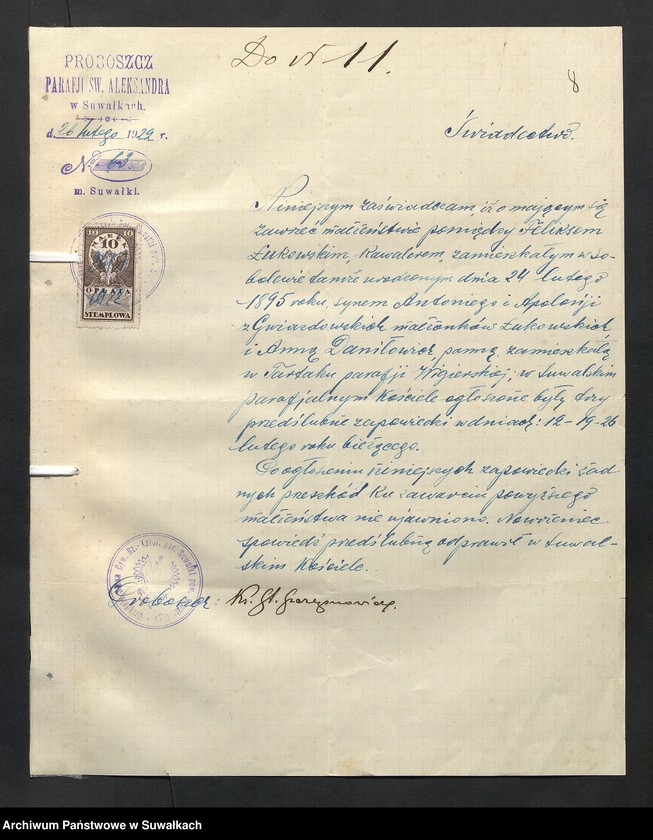 PROBOSZCZ
PARAFJI ŚW. ALEKSANDRA
w Suwałkach.
d. 26 lutego 1922 r.
№ 63
m. Suwałki.
Do № 11.
8
Świadectwo.
10 10
MAREK
10
OPŁATA
STEMPLOWA
Niniejszym zaświadczam, iż o mającym się
zawrzeć małżeństwie pomiędzy Feliksem
Łukowskim, kawalerem, zamieszkałym w So-
bolewie tamże urodzonym dnia 24 lutego
1895 roku, synem Antoniego i Apolonji
z Gwiazdowskich małżonków Łukowskich,
i Anną Daniłowicz, panną, zamieszkałą
w Tartaku parafji Wigierskiej; w Suwalskim
parafjalnym Kościele ogłoszone były trzy
przedślubne zapowiedzi w dniach: 12-19-26
lutego roku bieżącego.
Po ogłoszeniu niniejszych zapowiedzi żad
nych przeszkód ku zawarciu powyższego
małżeństwa nie ujawniono. Nowożeniec
spowiedź przedślubną odprawił w Suwal-
skim Kościele.
Proboszcz: Ks. St.
Archiwum Państwowe w Suwałkach